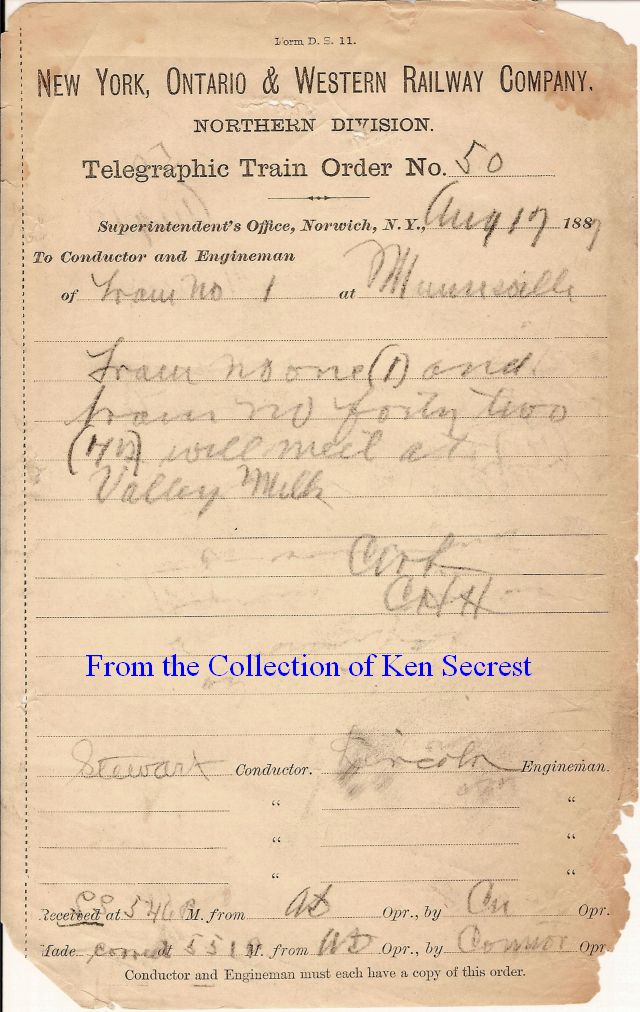 Form D. S. 11.
NEW YORK, ONTARIO & WESTERN RAILWAY COMPANY.
NORTHERN DIVISION.
Telegraphic Train Order No. 50
Superintendent's Office, Norwich, N. Y., Aug 17 1887
To Conductor and Engineman
of Train No 1 at Munnsville
Train no one (1) and
train no forty two
(42) will meet at
Valley Mills
CHH
From the Collection of Ken Secrest
Stewart Conductor. Lincoln Engineman.
“ “
“ “
“ “
Received at 546 P M. from Opr., by Cn Opr.
Made correct at 551 P M. from Opr., by Connor Opr.
Conductor and Engineman must each have a copy of this order.